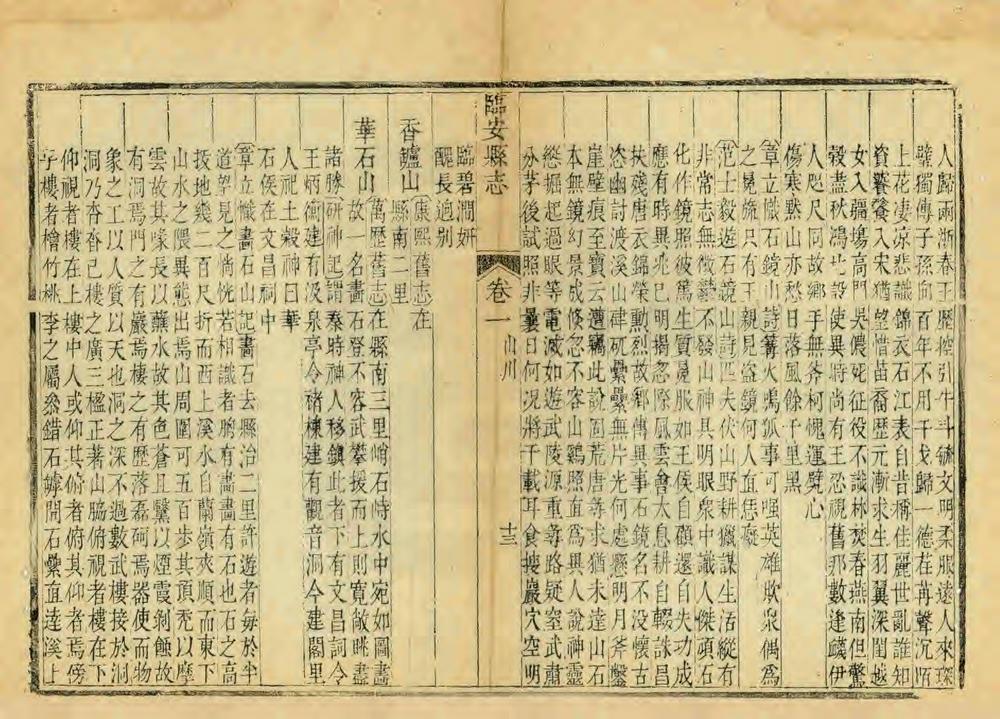 人歸兩浙春王歷控引牛斗鍾文明柔服遠人來琛
贐獨傳子孫向百年不用干戈歸一德在苒聲沉陌
上花凄凉悲識錦衣石江表自昔稱佳麗世亂誰知
資饔飱入宋猶望惜苗裔歷元漸求生羽翼深閨越
女入疆場高門吳儂死征役不識林焚春燕南但驚
轂盡秋鴻北設使異時尚有王恐視舊邪數逢蠖伊
人咫尺同故鄉手無斧柯愧運甓心
傷寒默山亦愁日落風餘千里黑
章立幟石鏡山詩篝火鳴狐事可强英雄欺眾偶為
之冕旒只有王親見盜鏡何人宜恁癡
范士毅遊石鏡山詩匹夫伏山野耕獵謀生活縱有
非常志無微孽不發山神具明眼眾中識人傑頑石
化作鏡照彼篤生質冕服如王侯自顧還自失功成
應有時異兆已明揭忽際風雲會太息耕自輟誅昌
扶殘唐衣錦榮勲烈故鄉傳異事石鏡名不没懷古
恣幽討渡溪山硉矹纍纍無片光何處懸明月斧鑿
崖壁痕至寶云遭竊此說固荒唐尋求猶未達山石
本無鏡幻景成倐忽不容山鷄照宜為異人說神靈
慫掘起過眼等電滅如遊武陵源重尋路疑窒武肅
分茅後試照非曩日何況將千載耳食搜巖穴空明
臨安縣志
卷一
山川
十三
臨碧澗妍
醜長適别
香鑪山
康熙舊志在
縣南二里
華石山
萬歷舊志在縣南三里峭石峙水中宛如圖畫
故一名畵石登不容武攀援而上則寬敞眺盡
諸勝
研神記謂秦時神人移鎮此者下有文昌祠今
王炳衝建有汲泉亭令褚棟建有觀音洞今建閣里
人祀土榖神曰華
石侯在文昌祠中
章立幟畫石山記畵石去縣治二里許遊者每於半
道望見之惝恍若相識者滕有畵畵有石也石之高
扳地幾二百尺折而西上溪水自蘭嶺夾順而東下
山水之隈異態出焉山周圍可五百歩其頂禿以摩
雲故其喙長以蘸水故其色蒼且黳以煙霞剝蝕故
有洞焉門之有巖焉樓之有歷落磊砢焉器使而物
象之工以人質以天也洞之深不過數武樓接於洞
洞乃杳杳已樓之廣三楹正著山脇俯視者樓在下
仰視者樓在上樓中人或仰其俯者俯其仰者焉傍
子樓者檜竹桃李之屬參錯石罅間石纍直達溪上